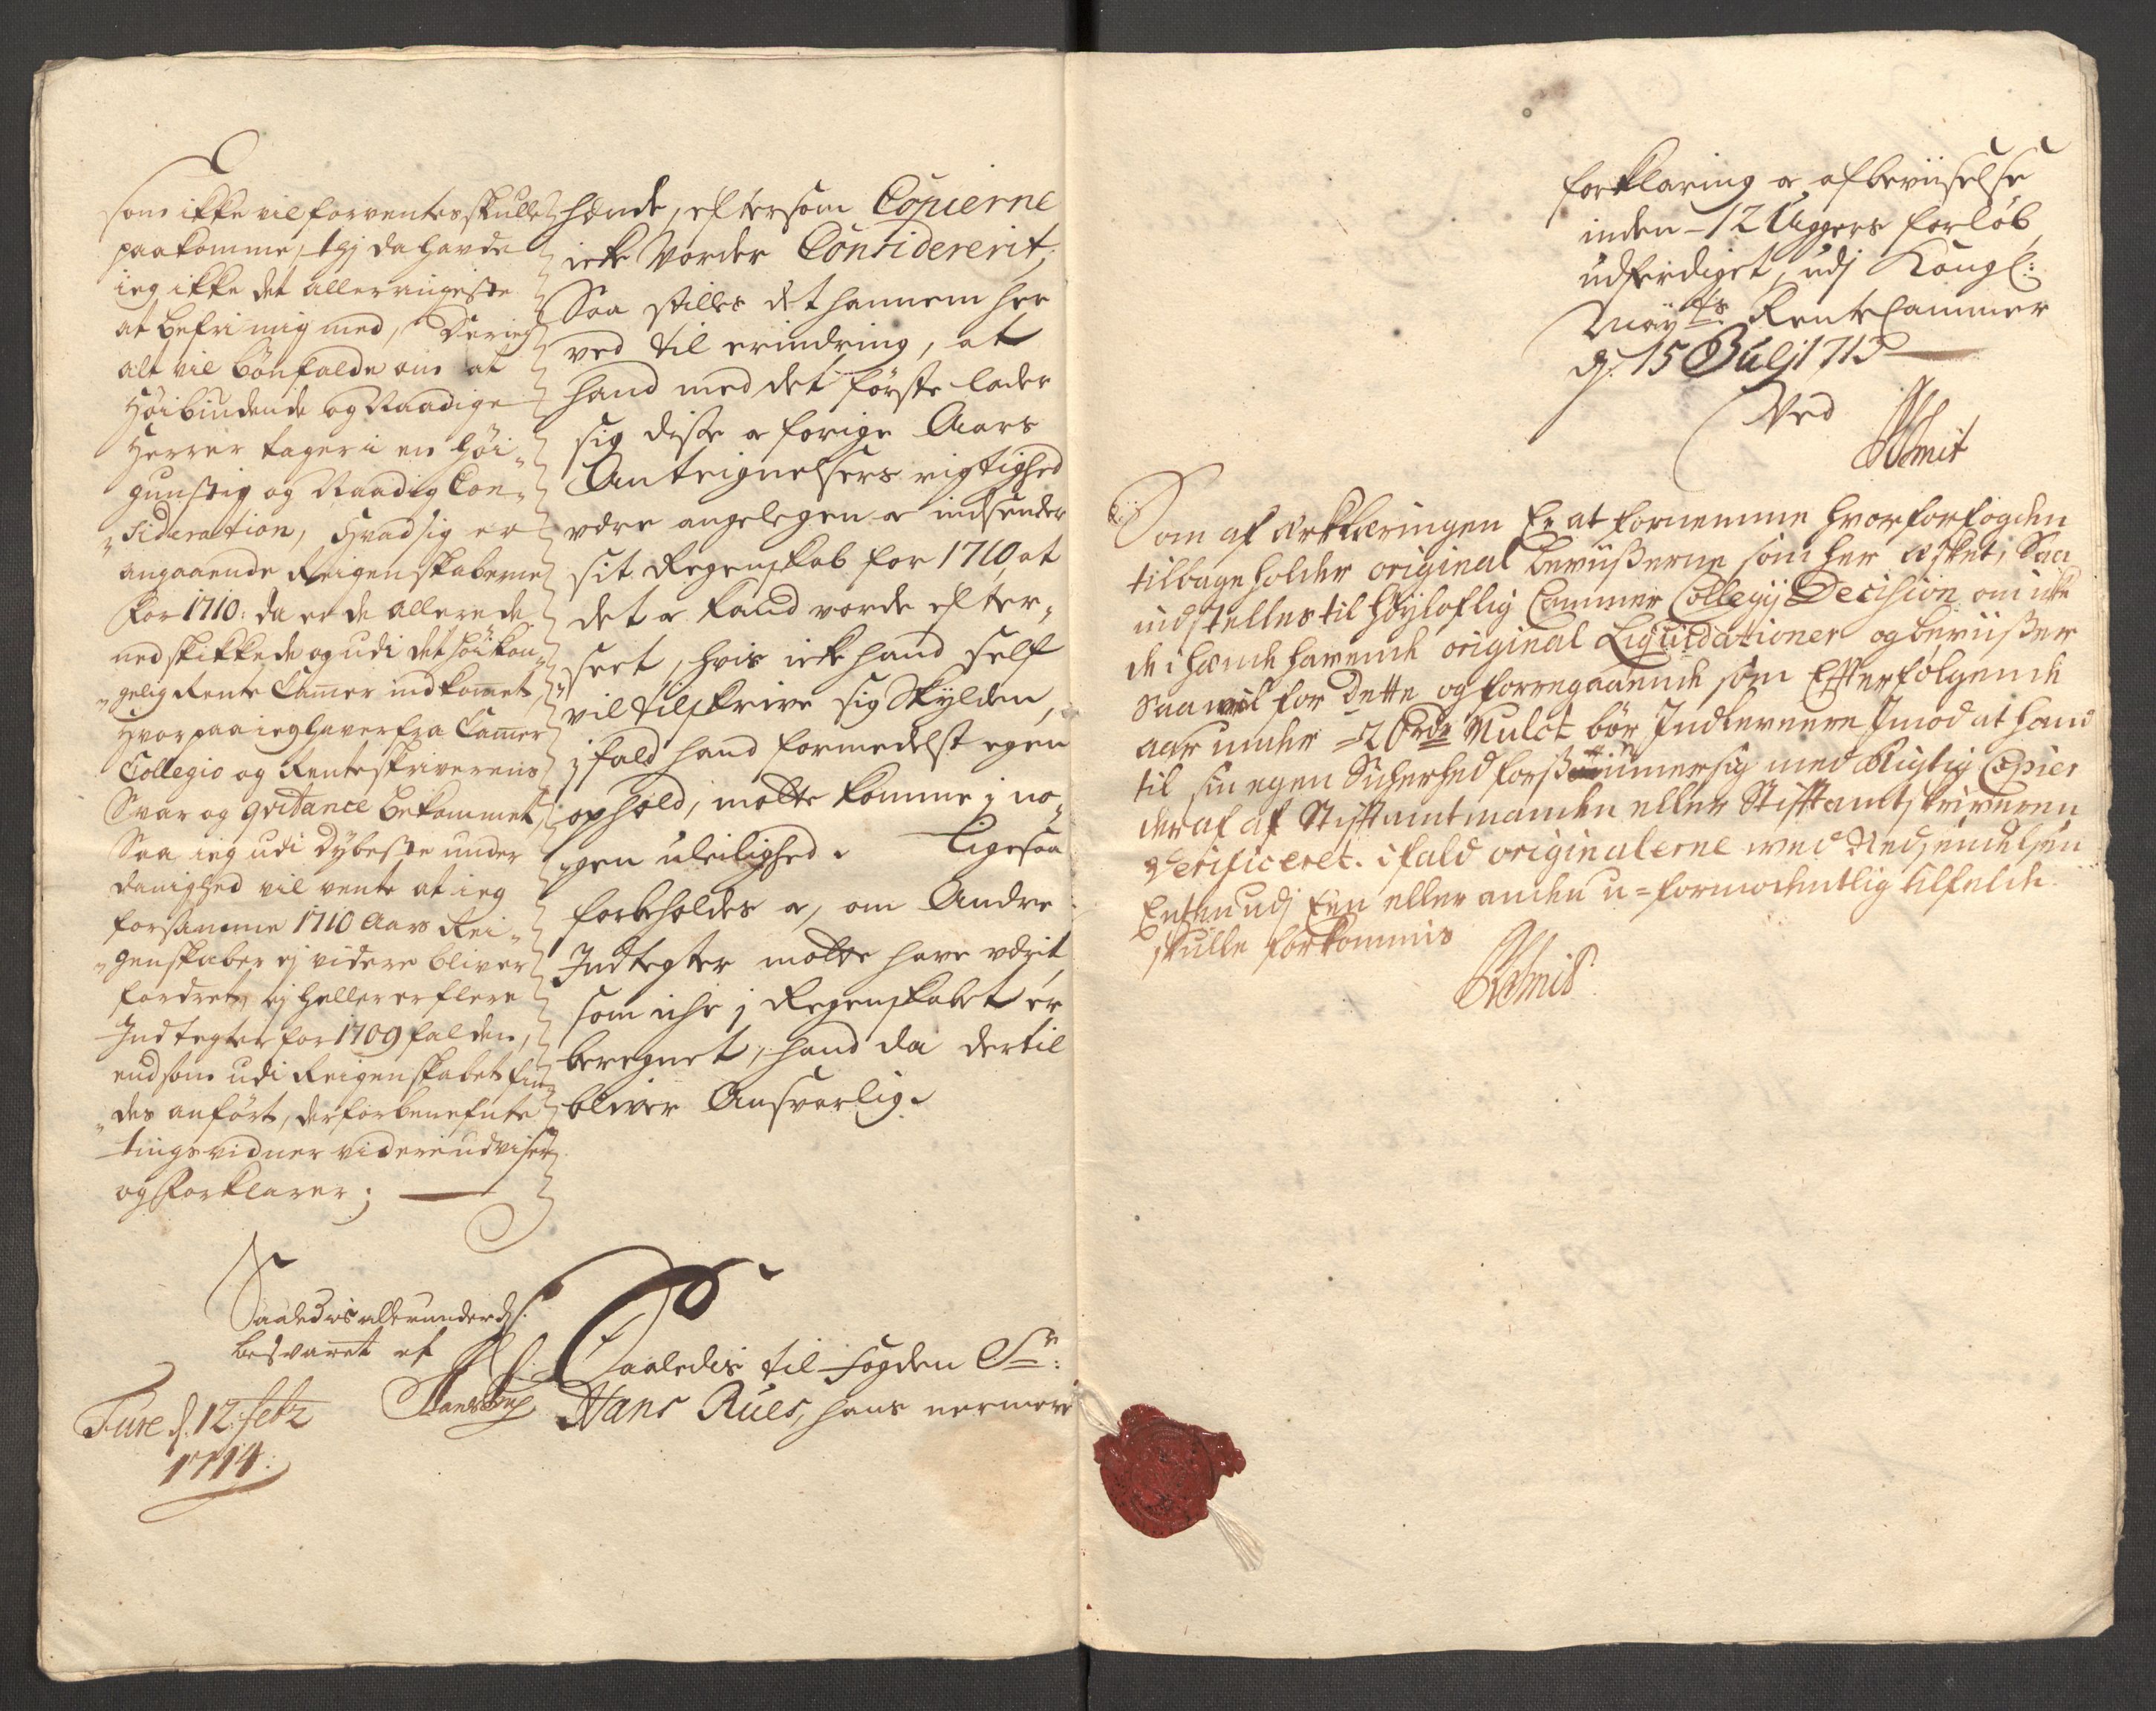 som ikke vil forventes skulle
paakomme, thj da hafde
ieg ikke det allerringeste
at befri mig med, Derieg
alt vil bönfalde om at
Höibiudende og Naadige
Herrer tager i en höi-
gunstig og Naadig Con-
sideration, Hvad sig er
angaaende Reigenskaberne
for 1710: da er de allerede
nedskikkede og udi det höi kon-
gelig Rente Camer indkomet,
Hvorpaa ieg haver fra Camer
Collegio og Renteskriverens
Svar og qvitance bekommet,
Saa ieg udi Dybeste under
danighed vil vente at ieg
forsamme 1710 Aars Rei-
genskaber ej videre bliver
fordret, ej heller er flere
Indtegter for 1709 falden,
end som udi Reigenskabet fin-
des anfört, derforbenefnte
tingsvidner videre udviser
og forklarer;
Saaledis allerunderd:
besvaret af
Hans Rues
Ture d. 12. febr
1714.
hænde, eftersom Copierne
icke vorder Considererit,
Saa stilles det hannem her
ved til erindring, at
hand med det förste lader
sig disse og forige Aars
Antegnelsers rigtighed
være angelegen og indsender
sit Regenskab for 1710, at
det og kand vorde efter-
seet, hvis icke hand self
vil tilskrive sig Skylden,
j fald hand formedelst egen
ophold, motte komme j no-
gen uleilighed. Ligesaa
forbeholdes og, om Andre
Indtegter motte have værit
som icke j Regenskabet er
beregnet, hand da dertil
bliver Ansvarlig.
Saaledis til fogden Sr:
Hans Rues, hans nermere
forklaring og afbeviiselse
inden 12 Uggers forlöb,
udferdiget, udj Kongl:
Mayts. Rente Cammer
d. 15 Julj 1713
Ved
Smit
Som af Erklæringen Er at fornemme hvorfor fogden
tilbageholder original beviißerne som her æsket, Saa
indstelles til höyloflig Cammer Collegij Decision om icke
de i hænde havende original Liqvidationer og beviißer
saavel for Dette og forregaaende som Efterfölgende
aar under 20 rdr Mulct bör Indleverere Imod at hand
til sin egen Sicherhed forß inersig med Rigtig Copier
deraf af Stiftamtmanden eller Stiftamtskriveren
Verificeret. ifald originalerne ved Nedsendelsen
Enten udj Een eller anden u-formodentlig tilfelde
skulle forkommis
Smit